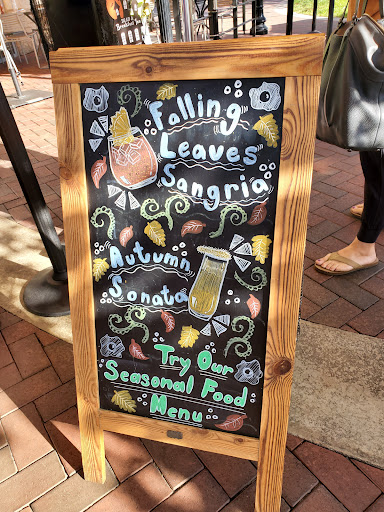 Falling
Leaves
Sangria
Autumn
Sonata
Try Our
Seasonal Food
Menu